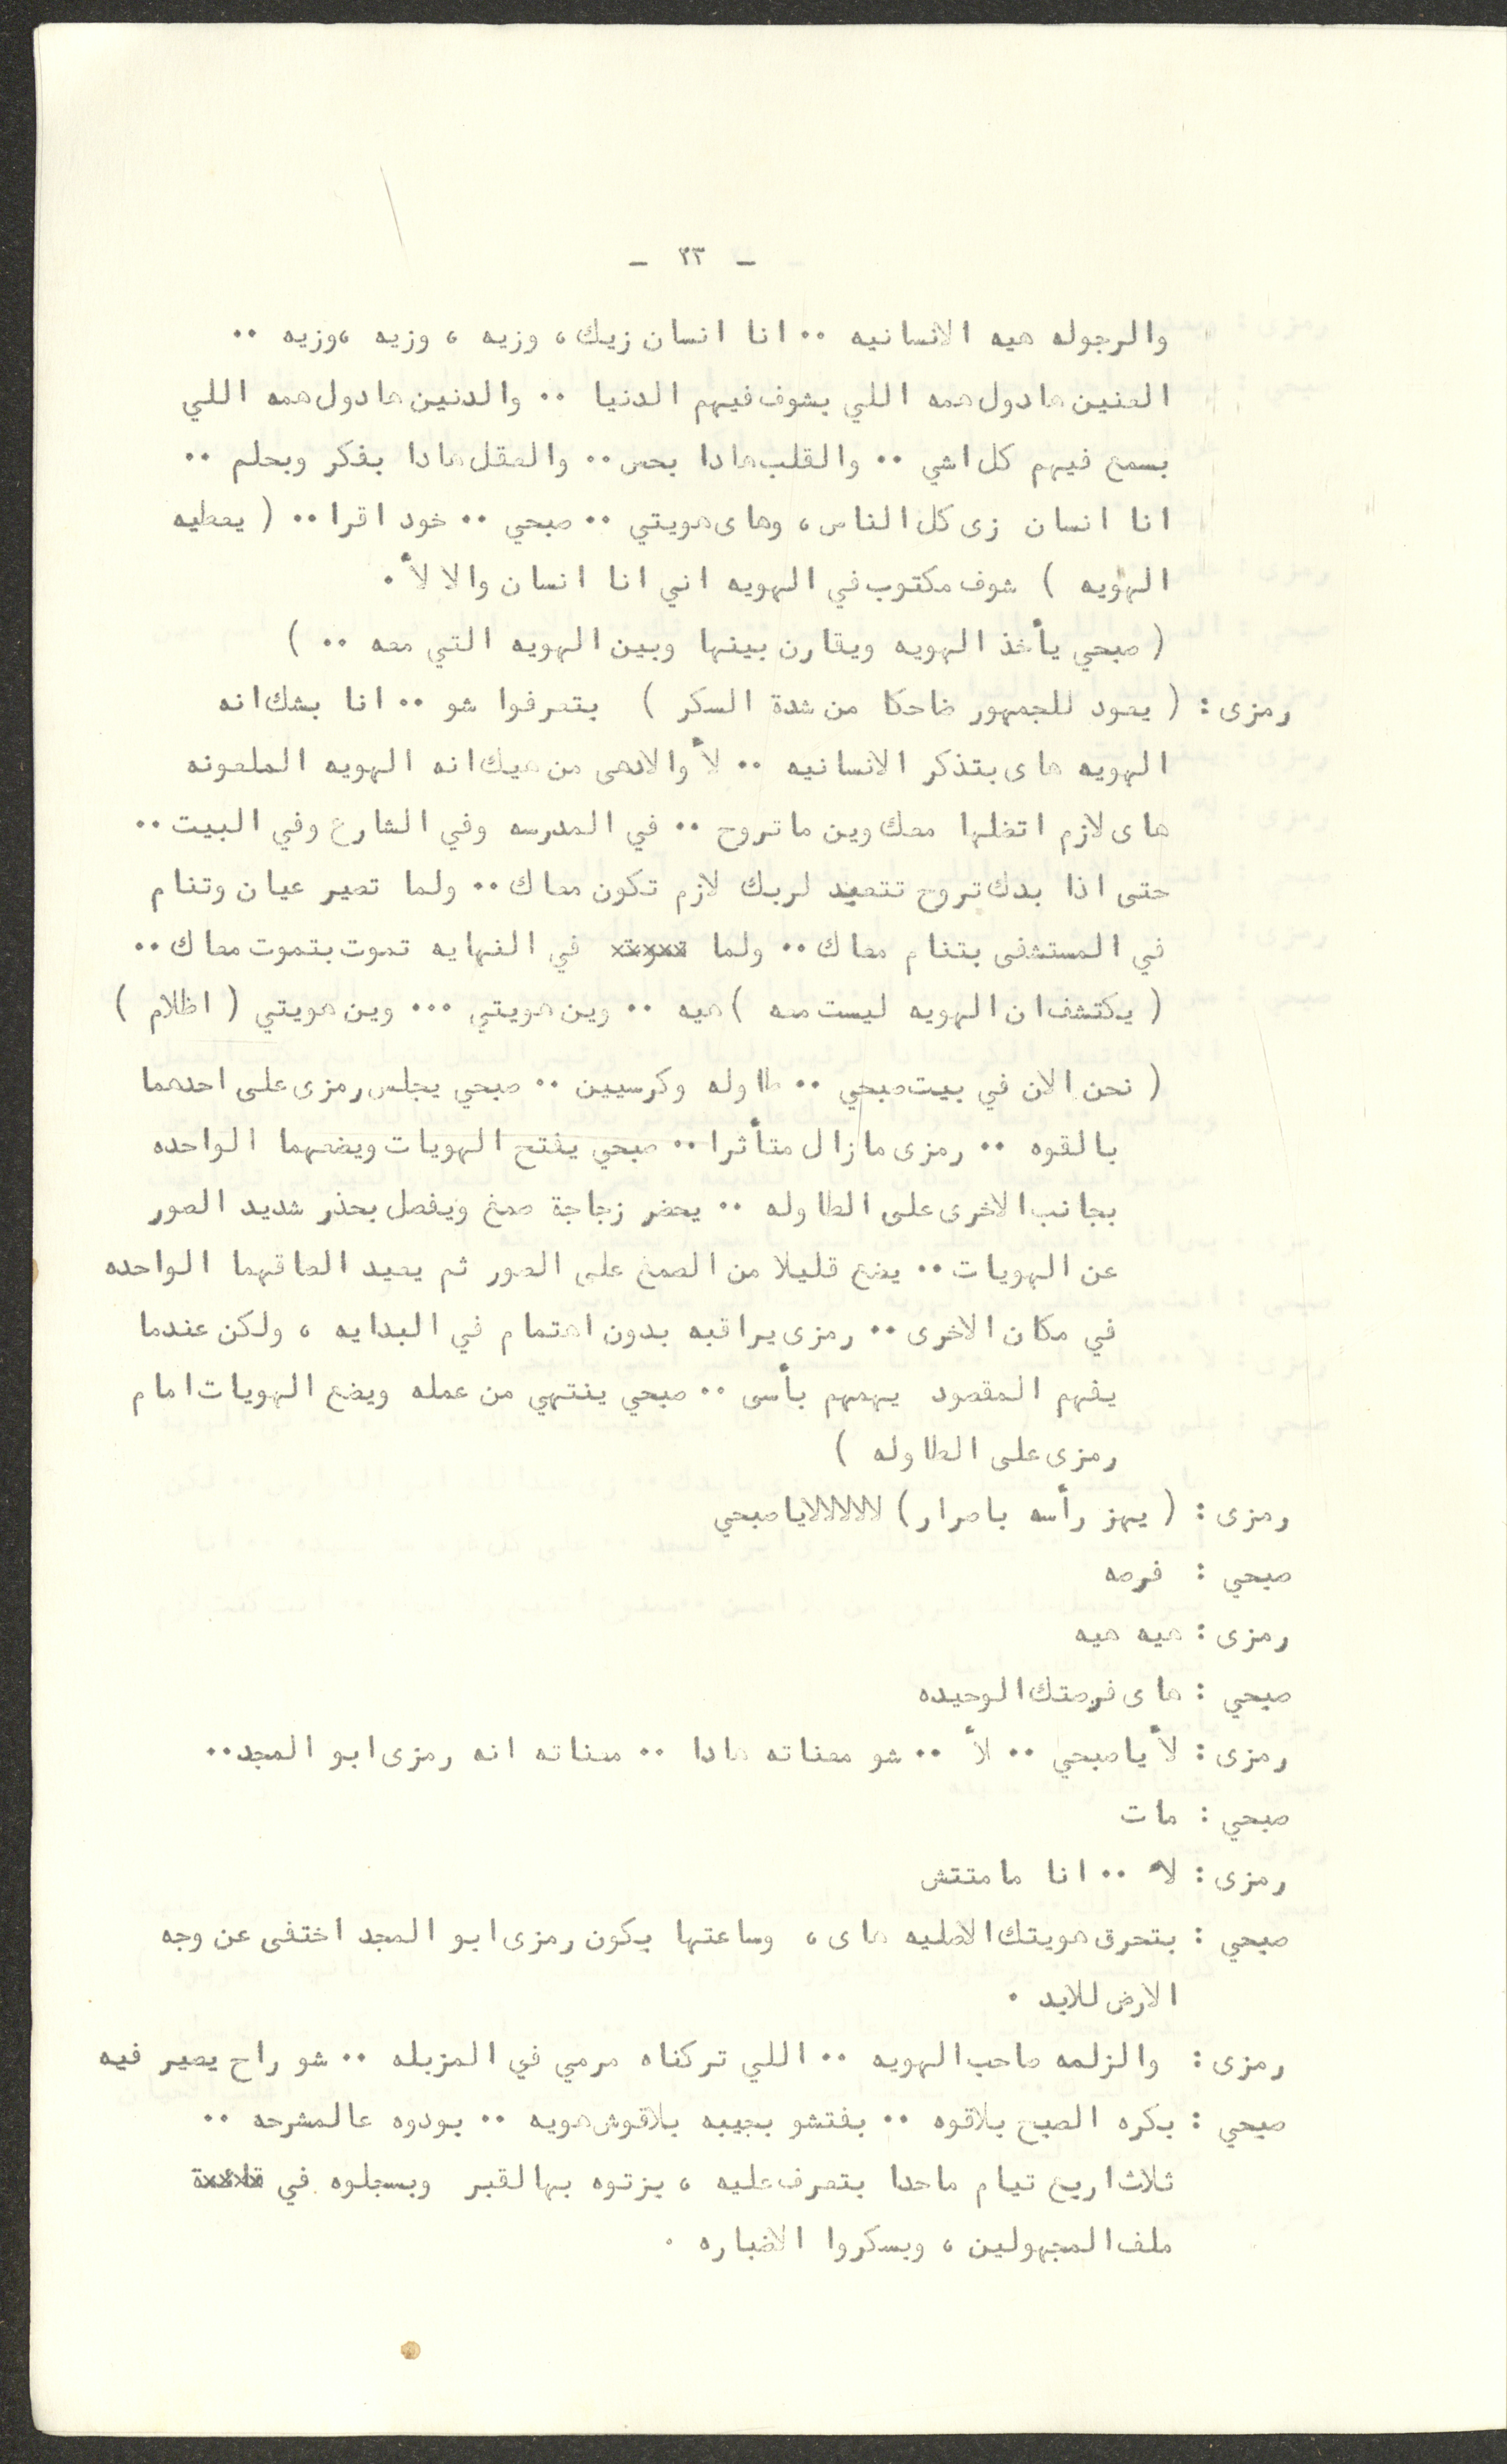 - ٢٣ -
والرجوله هيه الانسانيه .. انا انسان زيك، وزيه ، وزيه ،وزيه ..
العنين هادول همه اللي بشوف فيهم الدنيا .. والدنين هادول همه اللي
بسمع فيهم كل اشي .. والقلب هادا بحس .. والعقل هادا بفكر وبحلم ..
انا انسان زى كل الناس، وهاى هويتي .. صبحي .. خود اقرا .. ( يعطيه
الهويه ) شوف مكتوب في الهويه اني انا انسان والا لأ .
( صبحي يأخذ الهويه ويقارن بينها وبين الهويه التي معه .. )
رمزى : ( يعود للجمهور ضاحكا من شدة السكر ) بتعرفوا شو .. انا بشك انه
الهويه هاى بتذكر الانسانيه .. لأ والادهى من هيك انه الهويه الملعونه
هاى لازم اتضلها معك وين ماتروح .. في المدرسه وفي الشارع وفي البيت ..
حتى اذا بدك تروح تتعبد لربك لازم تكون معاك .. ولما تصير عيان وتنام
في المستشفى بتنام معاك .. ولما تموت في النهايه تموت بتموت معاك ..
( يكتشف ان الهويه ليست معه ) هيه .. وين هويتي ... وين هويتي ( اظلام )
( نحن الان في بيت صبحي .. طاوله وكرسيين .. صبحي يجلس رمزى على احدهما
بالقوه .. رمزى مازال متأثرا .. صبحي يفتح الهويات ويضعهما الواحده
بجانب الاخرى على الطاوله .. يحضر زجاجة صمغ ويفصل بحذر شديد الصور
عن الهويات .. يضع قليلا من الصمغ على الصور ثم يعيد الصاقهما الواحده
في مكان الاخرى .. رمزى يراقبه بدون اهتمام في البدايه ، ولكن عندما
يفهم المقصود يهمهم بأسى .. صبحي ينتهي من عمله ويضع الهويات امام
رمزى على الطاوله )
رمزى : ( يهز رأسه باصرار ) لالالالالا ياصبحي
صبحي : فرصه
رمزى : هيه هيه
صبحي : هاى فرصتك الوحيده
رمزى : لأ ياصبحي .. لأ .. شو معناته هادا .. معناته انه رمزى ابو المجد ..
صبحي : مات
رمزى : لأ .. انا مامتتش
صبحي : بتحرق هويتك الاصليه هاى ، وساعتها بكون رمزى ابو المجد اختفى عن وجه
الارض للابد .
رمزى : والزلمه صاحب الهويه .. اللي تركناه مرمي في المزبله .. شو راح يصير فيه
صبحي : بكره الصبح بلاقوه .. بفتشو بجيبه بلاقوش هويه .. بودوه عالمشرحه ..
ثلاث اربع تيام ماحدا بتعرف عليه ، بزتوه بهالقبر وبسجلوه في
ملف المجهولين ، وبسكروا الاضباره .